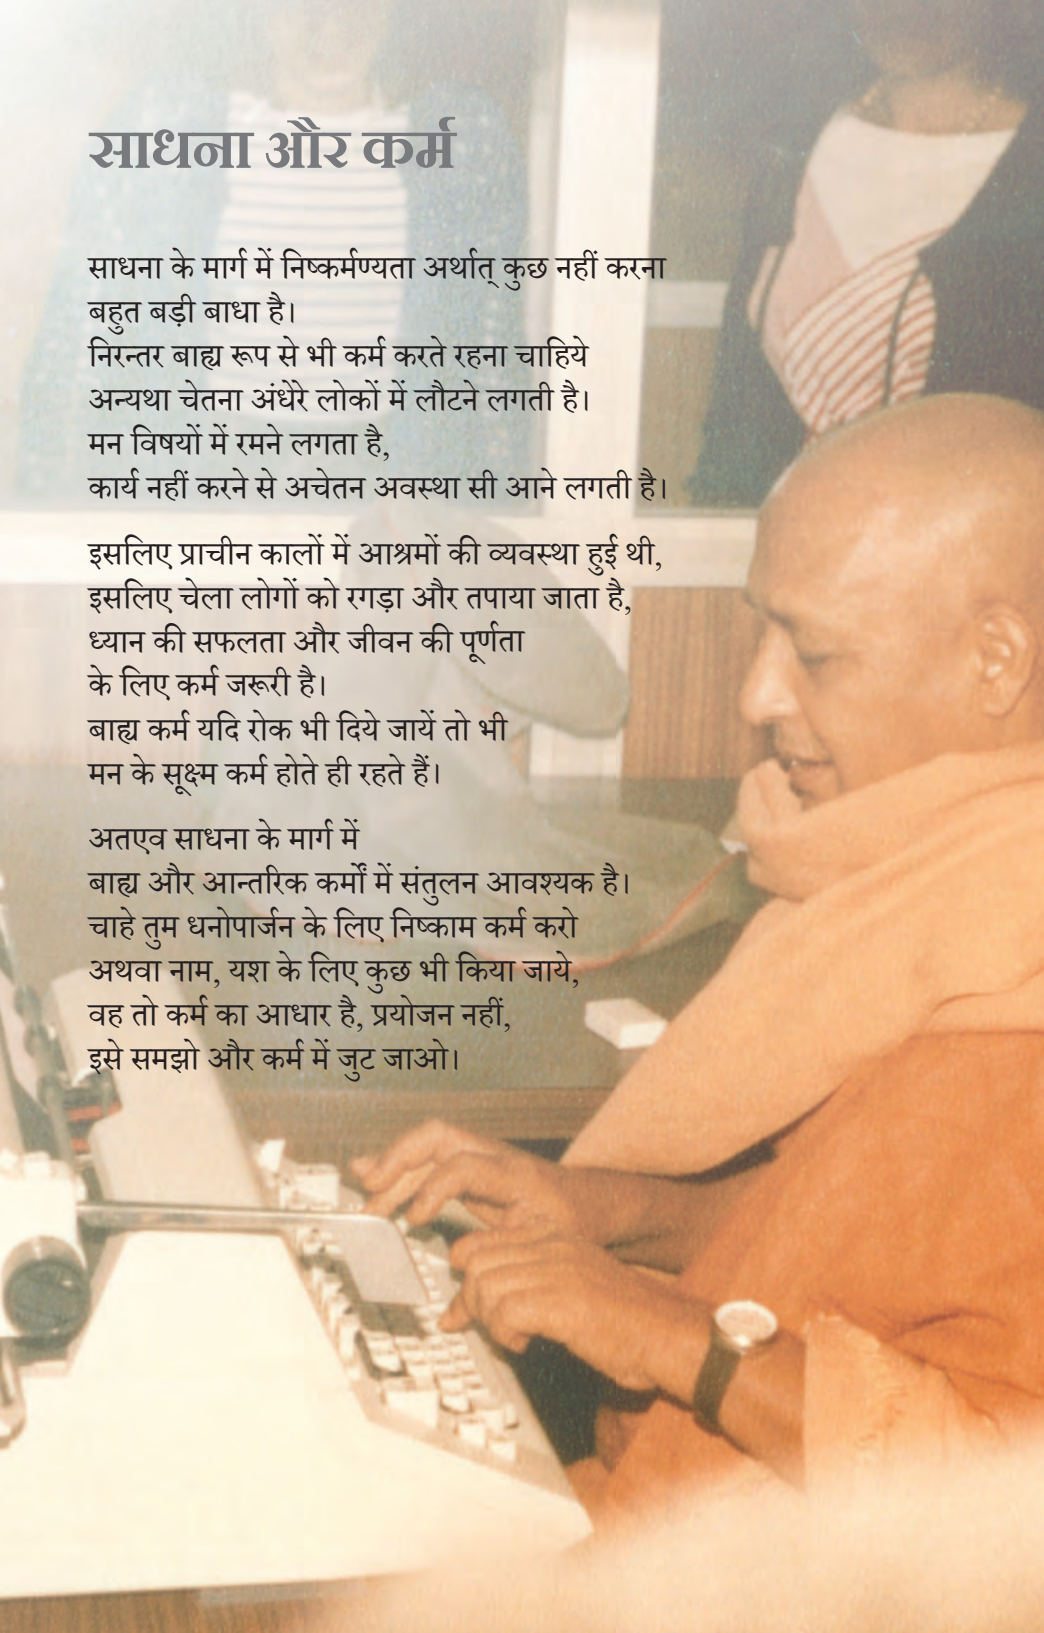 साधना और कर्म
साधना के मार्ग में निष्कर्मण्यता अर्थात् कुछ नहीं करना
बहुत बड़ी बाधा है।
निरन्तर बाह्य रूप से भी कर्म करते रहना चाहिये
अन्यथा चेतना अंधेरे लोकों में लौटने लगती है।
मन विषयों में रमने लगता है,
कार्य नहीं करने से अचेतन अवस्था सी आने लगती है।
इसलिए प्राचीन कालों में आश्रमों की व्यवस्था हुई थी,
इसलिए चेला लोगों को रगड़ा और तपाया जाता है,
ध्यान की सफलता और जीवन की पूर्णता
के लिए कर्म जरूरी है।
बाह्य कर्म यदि रोक भी दिये जायें तो भी
मन के सूक्ष्म कर्म होते ही रहते हैं।
अतएव साधना के मार्ग में
बाह्य और आन्तरिक कर्मों में संतुलन आवश्यक है।
चाहे तुम धनोपार्जन के लिए निष्काम कर्म करो
अथवा नाम, यश के लिए कुछ भी किया जाये,
वह तो कर्म का आधार है, प्रयोजन नहीं,
इसे समझो और कर्म में जुट जाओ।